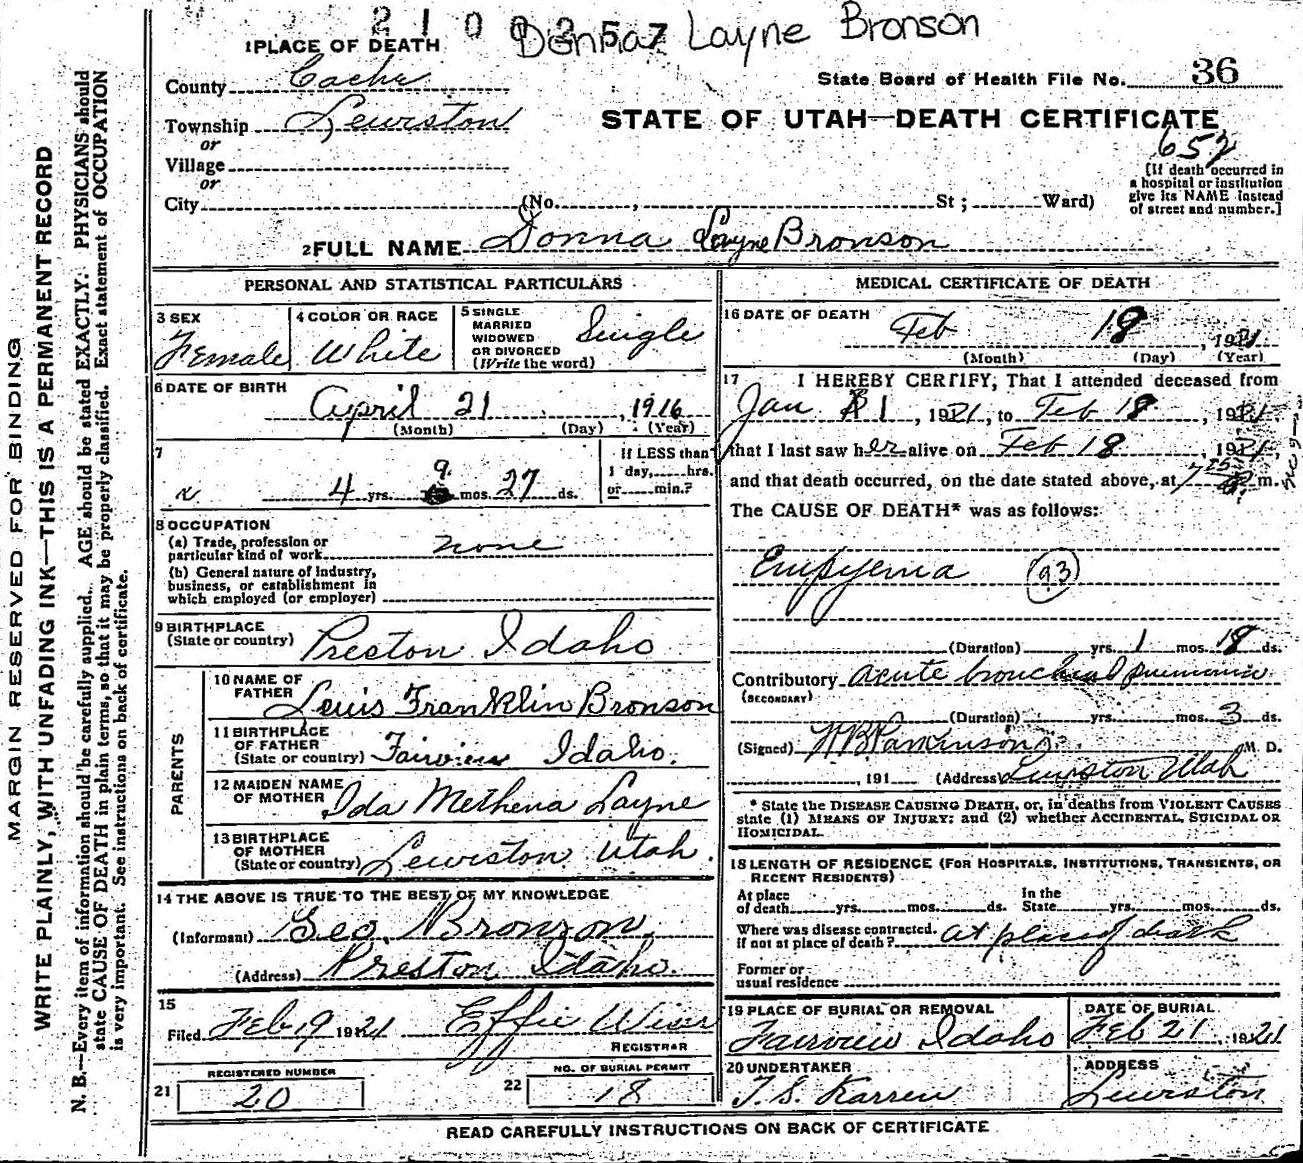 2 1 0 0 2 5 7
Donna Layne Bronson
1 PLACE OF DEATH
County Cache
State Board of Health File No. 36
Township Lewiston
or
STATE OF UTAH—DEATH CERTIFICATE
652
Village
or
City (No. , St ; Ward)
[If death occurred in
a hospital or institution
give its NAME instead
of street and number.]
2 FULL NAME Donna Layne Bronson
PERSONAL AND STATISTICAL PARTICULARS
3 SEX
Female
4 COLOR OR RACE
White
5 SINGLE
MARRIED
WIDOWED
OR DIVORCED
(Write the word)
Single
6 DATE OF BIRTH
April 21 , 1916
(Month) (Day) (Year)
7
4 yrs. 9 mos. 27 ds.
If LESS than
1 day, hrs.
or min.?
8 OCCUPATION
(a) Trade, profession or
particular kind of work none
(b) General nature of industry,
business, or establishment in
which employed (or employer)
9 BIRTHPLACE
(State or country) Preston Idaho
PARENTS
10 NAME OF
FATHER
Lewis Franklin Bronson
11 BIRTHPLACE
OF FATHER
(State or country) Fairview Idaho.
12 MAIDEN NAME
OF MOTHER Ida Methena Layne
13 BIRTHPLACE
OF MOTHER
(State or country) Lewiston Utah.
14 THE ABOVE IS TRUE TO THE BEST OF MY KNOWLEDGE
(Informant) Geo. Bronson.
(Address) Preston Idaho.
15
Filed Feb 19 1921 Effie
REGISTRAR
REGISTERED NUMBER
21 20
NO. OF BURIAL PERMIT
22 18
MEDICAL CERTIFICATE OF DEATH
16 DATE OF DEATH
Feb 18 , 1921
(Month) (Day) (Year)
17 I HEREBY CERTIFY, That I attended deceased from
Jan 1 , 1921, to Feb 18 , 1921,
that I last saw her alive on Feb 18 , 1921,
and that death occurred, on the date stated above, at 7 25 m.
The CAUSE OF DEATH* was as follows:
Empyema 93
(Duration) yrs. 1 mos. 18 ds.
Contributory acute bronchial pneumonia
(SECONDARY)
(Duration) yrs. mos. 3 ds.
(Signed) W B Parkinson Jr. M. D.
, 191 (Address) Lewiston Utah
* State the DISEASE CAUSING DEATH, or, in deaths from VIOLENT CAUSES
state (1) MEANS OF INJURY; and (2) whether ACCIDENTAL, SUICIDAL OR
HOMICIDAL.
18 LENGTH OF RESIDENCE (FOR HOSPITALS, INSTITUTIONS, TRANSIENTS, OR
RECENT RESIDENTS)
At place
of death yrs. mos. ds.
In the
State yrs. mos. ds.
Where was disease contracted.
if not at place of death? at place of death
Former or
usual residence
19 PLACE OF BURIAL OR REMOVAL
Fairview Idaho
DATE OF BURIAL
Feb 21 , 1921
20 UNDERTAKER
T. S. Karren
ADDRESS
Lewiston
READ CAREFULLY INSTRUCTIONS ON BACK OF CERTIFICATE
MARGIN RESERVED FOR BINDING
WRITE PLAINLY, WITH UNFADING INK—THIS IS A PERMANENT RECORD
N. B.—Every item of information should be carefully supplied. AGE should be stated EXACTLY. PHYSICIANS should
state CAUSE OF DEATH in plain terms, so that it may be properly classified. Exact statement of OCCUPATION
is very important. See instructions on back of certificate.